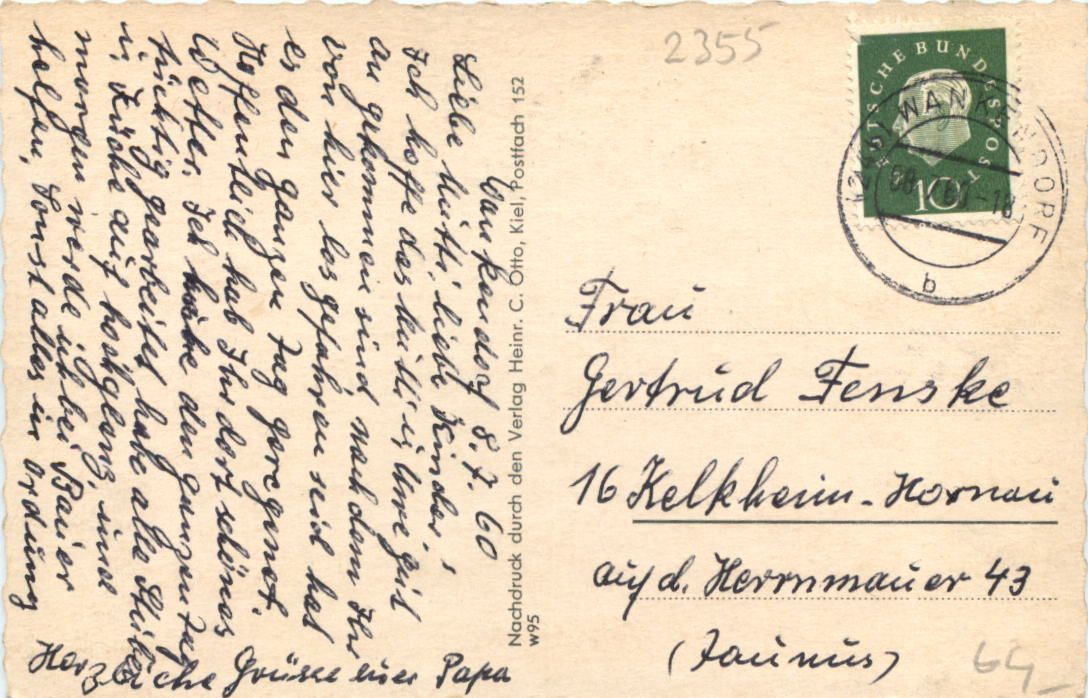 Wankendorf 8.7.60
Liebe Mutti liebe Kinder!
Ich hoffe das Mutti u. Uwe gut
an gekommen sind nach dem Ihr
von hier los gefahren seid hat
es den ganzen Tag geregnet.
Hoffentlich hab Ihr dort schönes
Wetter. Ich habe den ganzen Tag
tüchtig gearbeitet habe alle
u. Küche auf hochglanz, und
morgen werde ich bei Bauer
helfen, Sonst alles in ordung
Herzliche Grüsse euer Papa
Nachdruck durch den Verlag Heinr. C. Otto, Kiel, Postfach 152
w95
2355
DEUTSCHE BUNDESPOST
10
WANKENDORF
b
Frau
Gertrud Fenske
16 Kelkheim-Hornau
auf d. Herrnmauer 43
(Taunus)
64